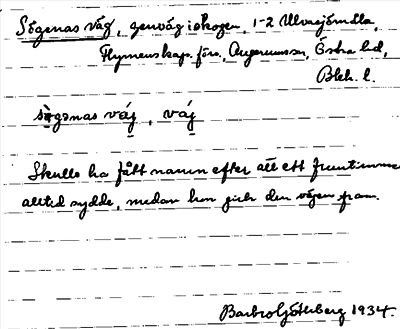 Sögenas väg, genväg i skogen, 1-2 Ulvasjömåla,
Flymens kap. förs., Augerums sn, Östra hd,
Blek. l.
sögənas väj, väj
Skulle ha fått namn efter att ett fruntimmer
alltid sydde, medan hon gick den vägen fram.
Barbro Götberg 1934.